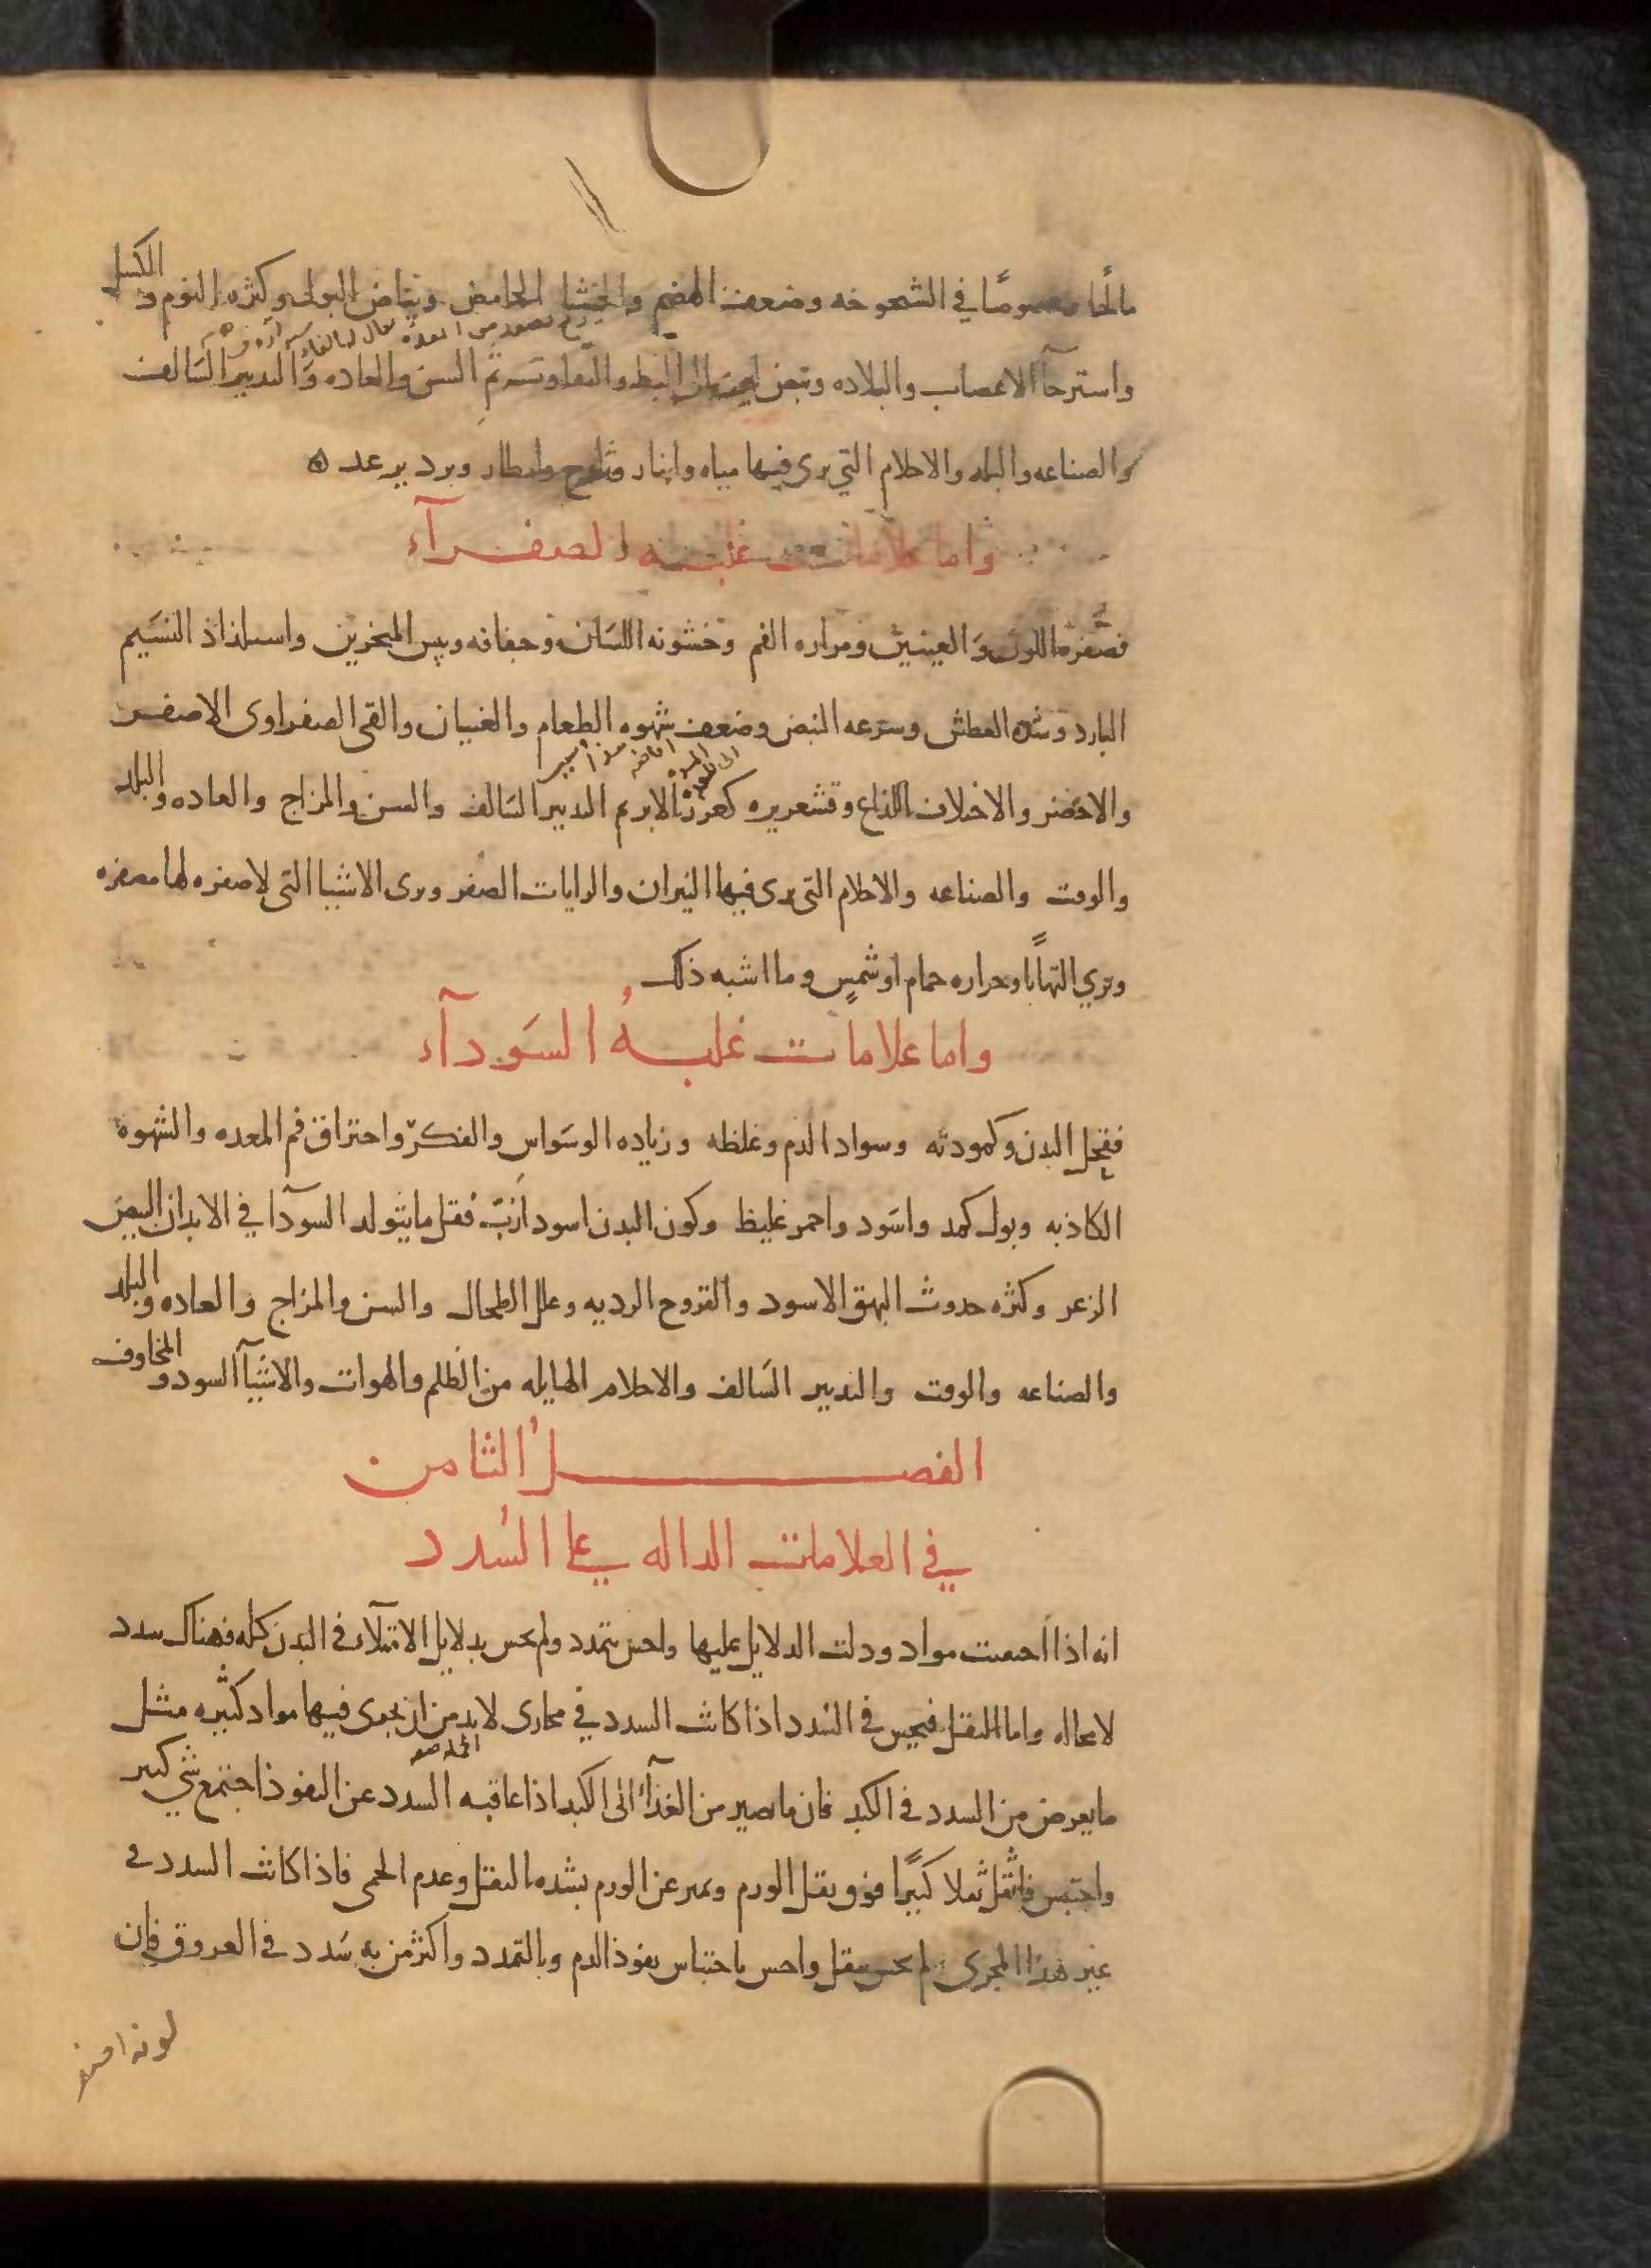 مالحا وخصوصًا في الشيخوخه وضعف الهضم والجشا الحامض وبياض البول وكثره النوم والكسل
واسترخآ الاعصاب والبلاده ونبض لين الى البطو والتفاوت ثم السن والعاده والتدبير السَالف
والصناعه والبلد والاحلام التي يرى فيها مياه وانهار وثلوج وامطار وبرد برعد ه
واما علامات غلبه الصفرآء
فصُفرة اللون وَالعينين ومراره الفم وخشونه اللسَان وجفافه ويبس المنخرين واستلذاذ النسَيم
البارد وشده العطش وسرعه النبض وضعف شهوه الطعام والغثيان والقى الصفراوى الاصفر
والاخضر والاختلاف اللذاع وقشعريره كغرز الابر ثم التدبير السَالف والسن والمزاج والعاده والبلد
والوقت والصناعه والاحلام التى يرى فيها النيران والرايات الصفر ويرى الاشيا التى لا صفره لها مصفره
ويري التهابًا وحراره حمام او شمسٍ وما اشبه ذلك
واما علامات غلبهُ السَودآء
فقحل البدن وكمودته وسواد الدم وغلظه وزياده الوسَواس والفكر واحتراق فم المعده والشهوة
الكاذبه وبول كمد واسَود واحمر غليظ وكون البدن اسود اَزبّ فقل ما يتولد السودآ في الابدان البيض
الزعر وكثره حدوث البهق الاسود والقروح الرديه وعلل الطحال والسن والمزاج والعاده والبلد
والصناعه والوقت والتدبير السَالف والاحلام الهايله من الظلم والهوات والاشيآ السود والمخاوف
الفصل الثامن
في العلامات الداله على السُدد
انه اذا احتقنت مواد ودلت الدلايل عليها واحس بتمدد ولم يحس بدلايل الامتلآء في البدن كله فهناك سدد
لا محاله واما الثقل فيحس في السُدد اذا كانت السدد في مجارى لا بد من ان يجرى فيها مواد كثيره مثل
ما يعرض من السدد في الكبد فان ما يصير من الغذآء الى الكبد اذا عاقبه السدد عن النفوذ اجتمع شي كثير
واحتبس فاثقل ثقلا كبيرًا فوق ثقل الورم ويميز عن الورم بشده الثقل وعدم الحمى فاذا كانت السدد في
غير هذا المجرى لم يحس بثقل واحس باحتباس نفوذ الدم وبالتمدد واكثر من به سَدد في العروق فان
لونه اصفر